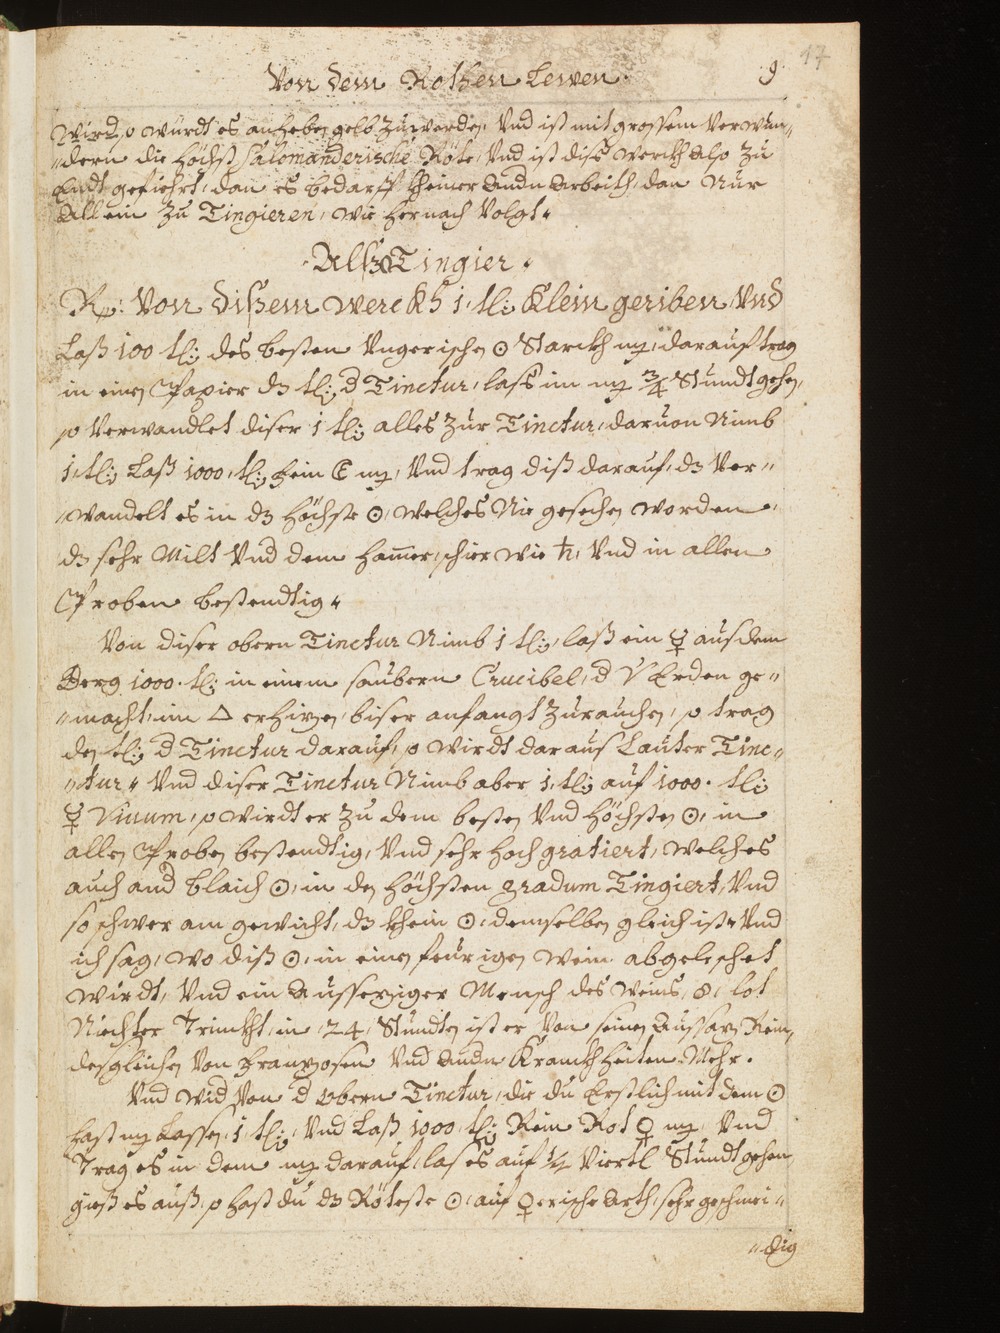 Von dem Rothen Lewen.
9
17
Wird, so würdt es anheben gelb zuwerden. Vnd ist mit grossem Verwun„
„dern die höchst Salomanderische Röte, Vnd ist diss werckh also zu
Endt gefiehrt, dan es bedarff kheiner andn Arbeith, dan Nur
Allein zu Tingieren, wie hernach Volgt.
Tingier.
Rp: Von dißem werckh 1. tl: Klein geriben Vnd
Laß 100 tl: des besten Vngerischen ☉ Starckh darauf trag
in einen Papier dz tl: d Tinctur, lass im ¾ Stundt gehen,
so Verwandlet diser 1 tl: alles zur Tinctur, daruon Nimb
1. tl: Laß 1000. tl: fein Vnd trag diß darauf, dz Ver„
„wandelt es in dz höchste ☉, welches Nie gesechen worden,
dz sehr Milt Vnd dem ham̅er, schier wie ♄, Vnd in allen
Proben bestendtig.
Von diser obern Tinctur Nimb 1 tl: laß ein ☿ aus dem
Berg 1000. tl: in einem saubern Crucibel, d Erden ge„
„macht, im △ erhizen, biser anfangt zurauchen, so trag
den tl: d Tinctur darauf, so wirdt daraus Lauter Tinc„
„ctur. Vnd diser Tinctur Nimb aber 1. tl: auf 1000. tl:
☿ Viuum, so wirdt er zu dem besten Vnd höchsten ☉, in
allen Proben bestendtig, Vnd sehr hoch gratiert, welches
auch and blaich ☉, in den höchsten gradum Tingiert, Vnd
so schwer am gewicht, dz khein ☉, demselben gleich ist. Vnd
ich sag, wo diß ☉, in einen feurigen wein abgeleschet
wirdt, Vnd ein Aussersiger Mensch des weins, 8, lot
Niechter Trinckht, in 24, Stundten ist er Von seinen Aussaz Rein,
desgleichen Von franzosen Vnd andn Kranckhheiten Mehr.
Vnd wid Von d obern Tinctur, die du Erstlich mit dem ☉
hast Lassen, 1. tl: Vnd Laß 1000. tl: Rein Rot ♀ Vnd
Trag es in dem darauf, las es auf ½ Viertl Stundt gehen,
gieß es auß, so hast du dz Röteste ☉, auf ♀erische Arth, sehr geschmei„
„dig